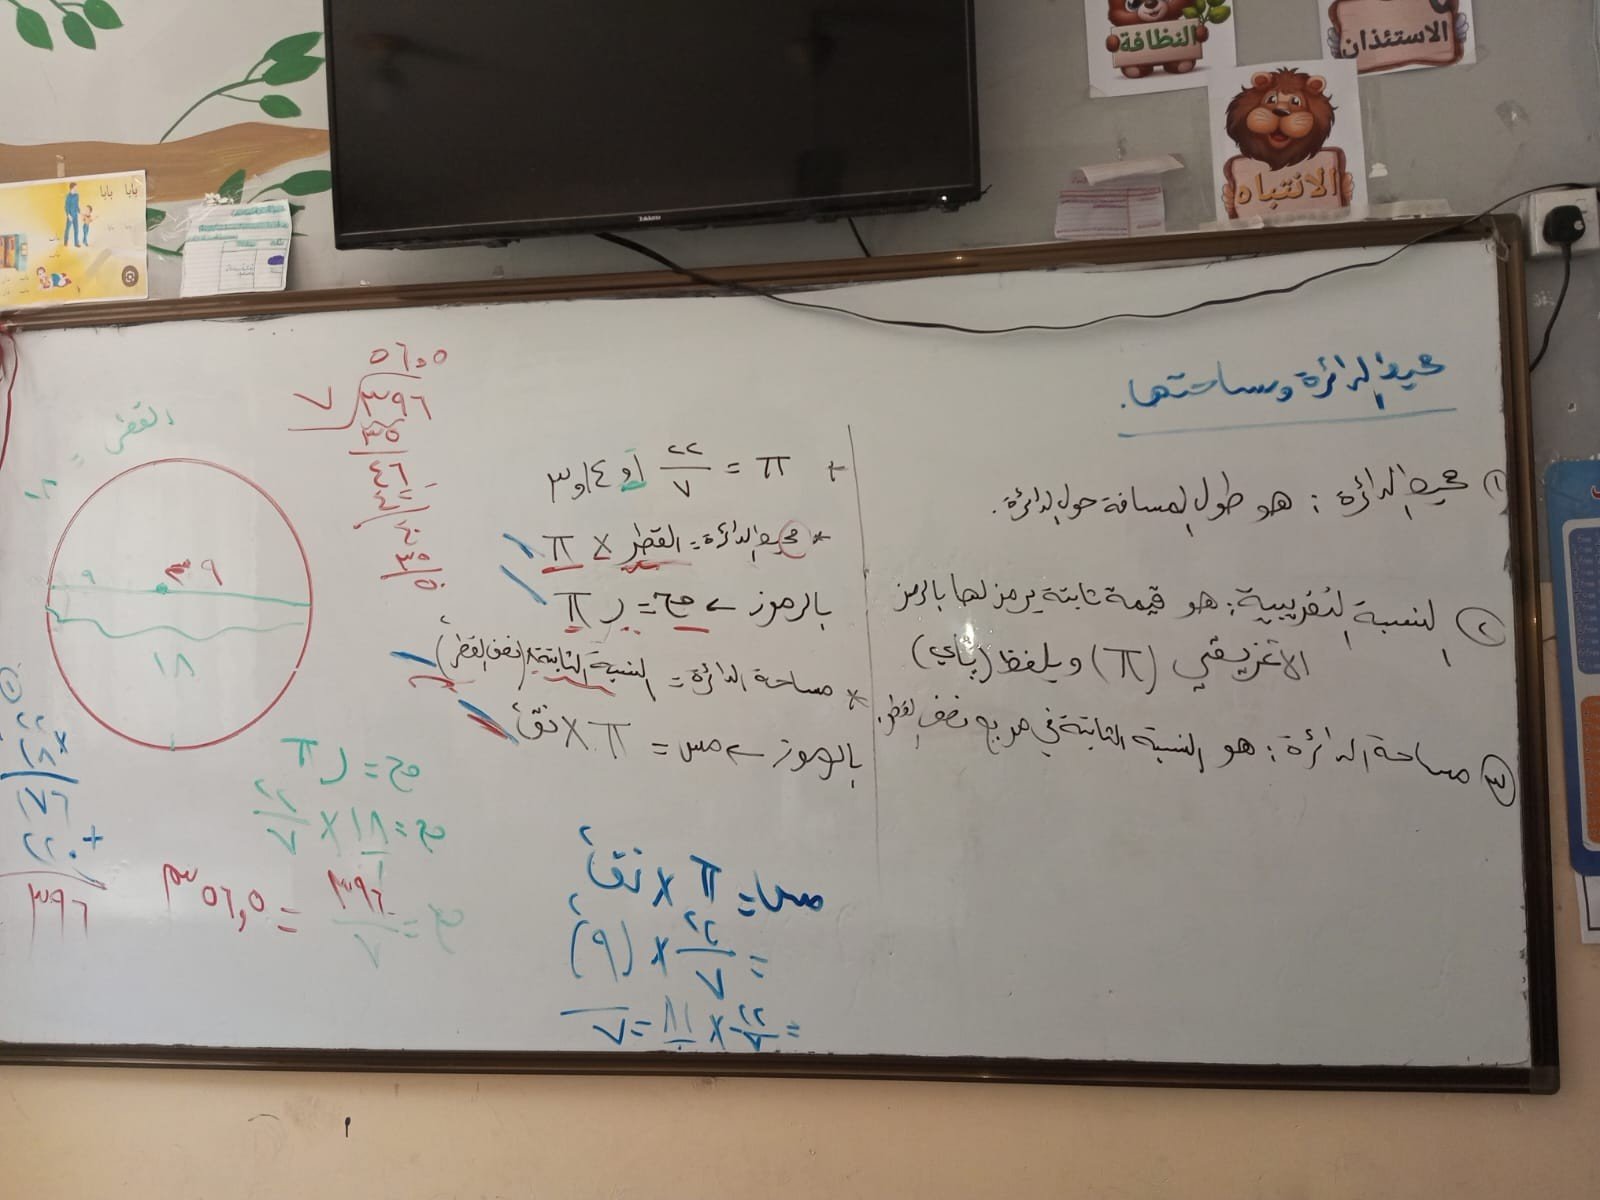 النظافة
الاستئذان
الانتباه
بابا بابا
محيط الدائرة ومساحتها.
١ محيط الدائرة : هو طول المسافة حول الدائرة.
٢ النسبة التقريبية : هو قيمة ثابتة يرمز لها بالرمز
الاغريقي (π) ويلفظ (باي)
٣ مساحة الدائرة : هو النسبة الثابتة في مربع نصف القطر.
π = ٢٢/٧ أو ٣,١٤
* محيط الدائرة = القطر × π
بالرموز ← مح = ر π
* مساحة الدائرة = النسبة الثابتة × (نصف القطر)²
بالرموز ← مس = π × نق²
مس = π × نق²
= ٢٢/٧ × (٩)²
= ٢٢/٧ × ٨١/١ = ــ/٧
٥٦,٥
٧
٣٩٦
٣٥
٤٦
٤٢
٤٠
٣٥
٥
القطر =
٩
٩م
١٨
مح = ر π
مح = ١٨/١ × ٢٢/٧
مح = ٣٩٦/٧ = ٥٦,٥ م
١٧٦
+
٢٢٠
٣٩٦